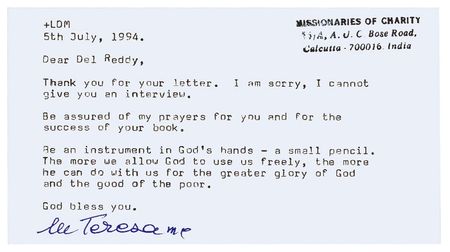 +LDM
5th July, 1994.
MISSIONARIES OF CHARITY
54/A, A. J. C Bose Road,
Calcutta - 700016. India
Dear Del Reddy,
Thank you for your letter. I am sorry, I cannot
give you an interview.
Be assured of my prayers for you and for the
success of your book.
Be an instrument in God's hands - a small pencil.
The more we allow God to use us freely, the more
he can do with us for the greater glory of God
and the good of the poor.
God bless you.
M Teresa mc